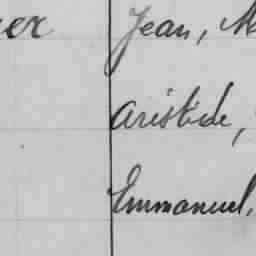 er Jean, M
Aristide,
Emmanuel,